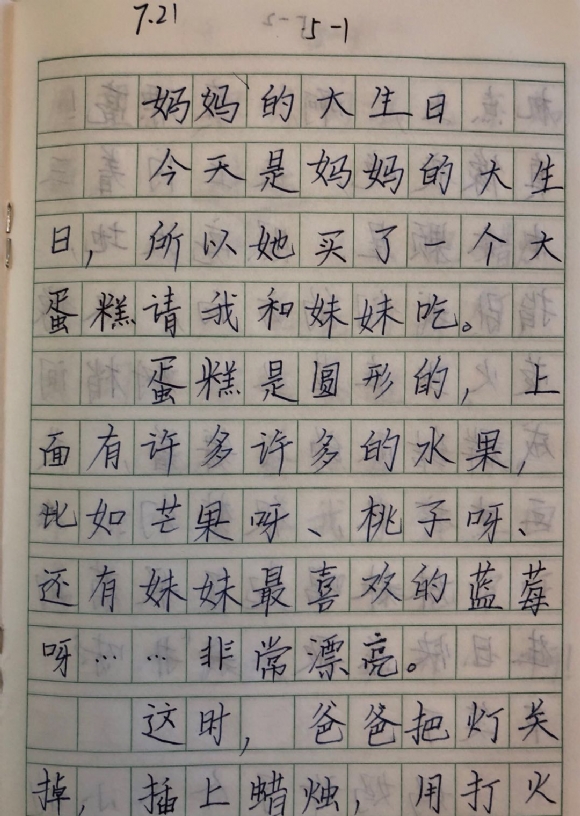 7.21
5-1
妈妈的大生日
今天是妈妈的大生
日,所以她买了一个大
蛋糕请我和妹妹吃。
蛋糕是圆形的,上
面有许多许多的水果,
比如芒果呀、桃子呀、
还有妹妹最喜欢的蓝莓
呀……非常漂亮。
这时,爸爸把灯关
掉,插上蜡烛,用打火